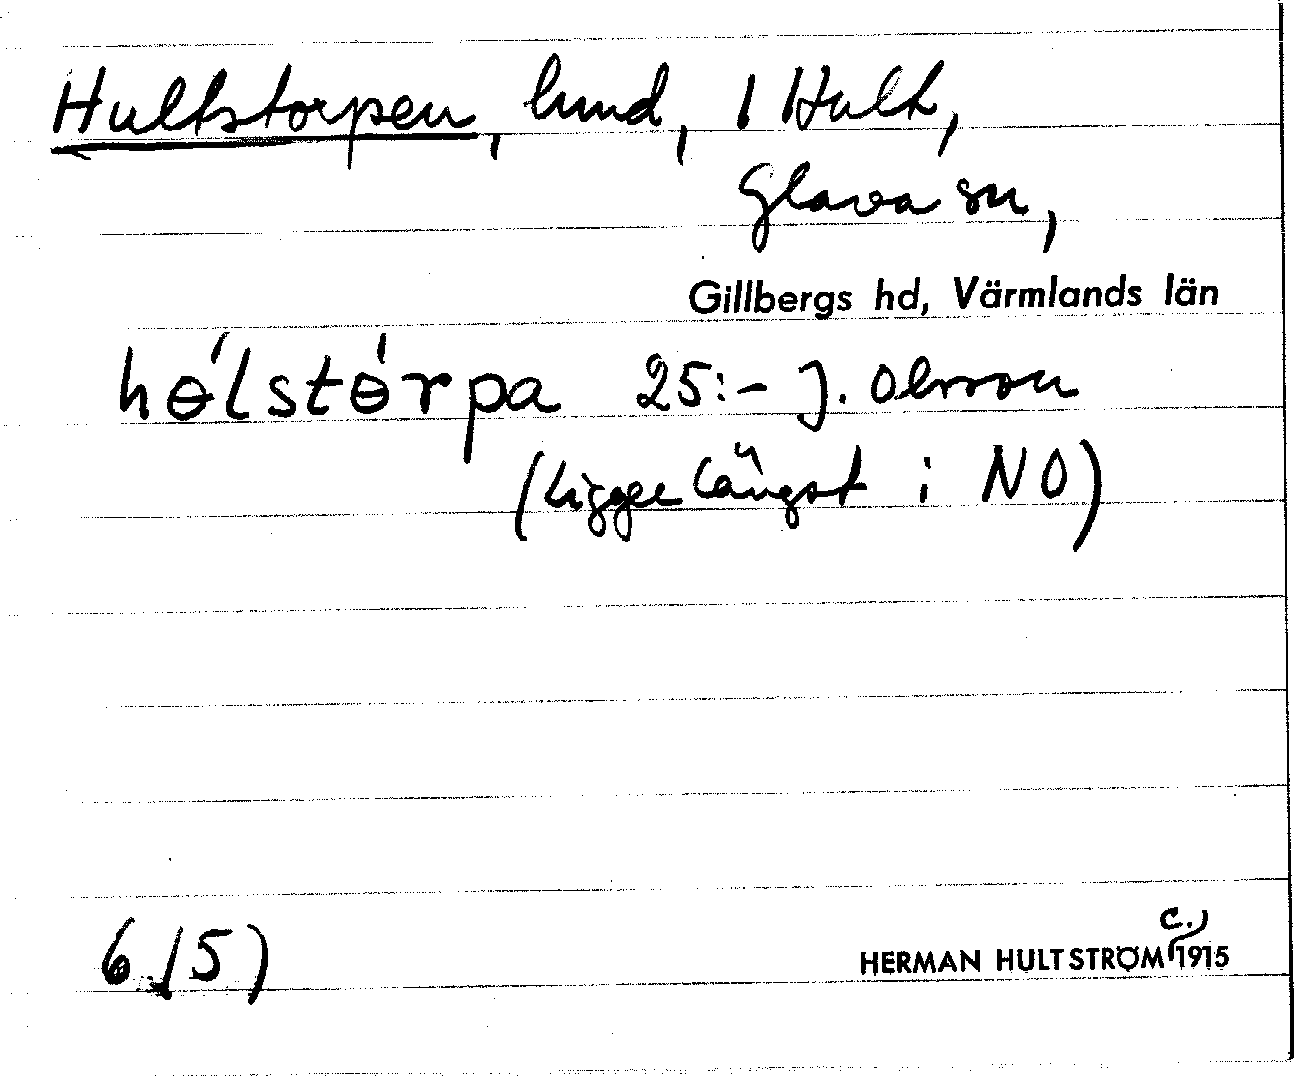 Hultstorpen, lund, 1 Hult,
Glava sn,
Gillbergs hd, Värmlands län
hɵ́lstɵ́rpa 25:- J. Olsson
(Ligger längst i NO)
6.(5)
HERMAN HULTSTRÖM c. 1915